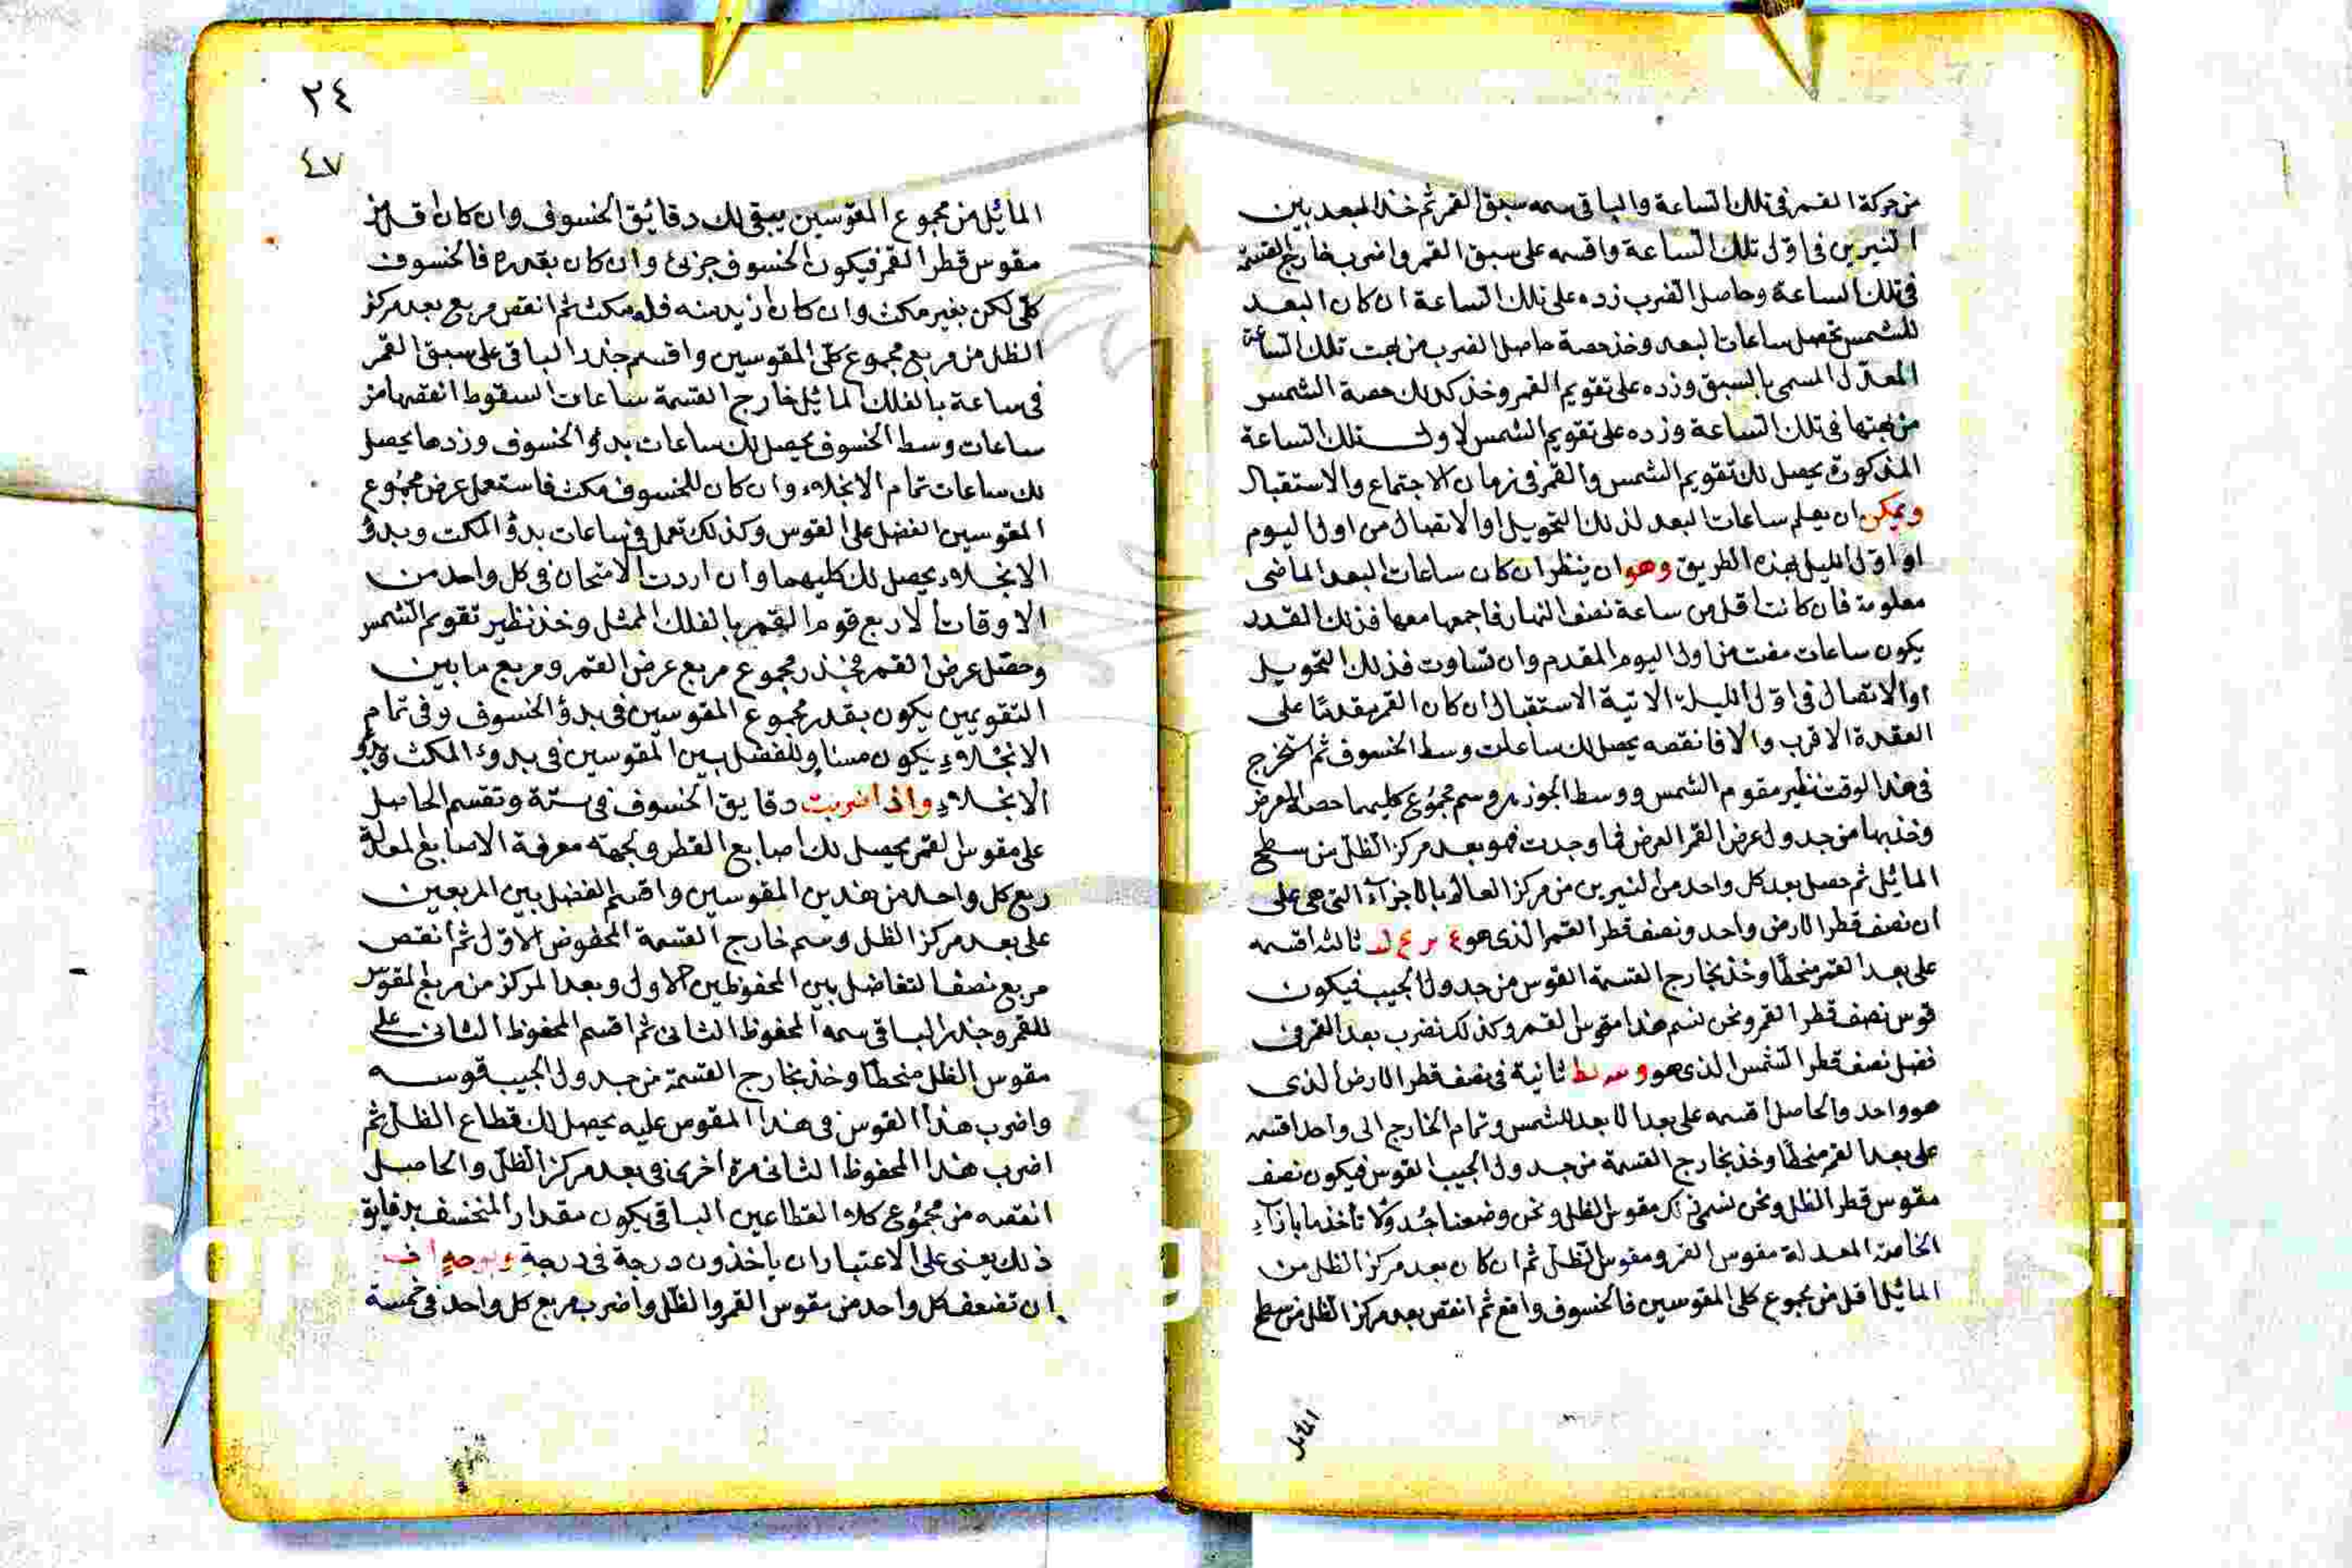 من حركة القمر في تلك الساعة والباقي سمه سبق القمر ثم خذ البعد بين
النيرين في اول تلك الساعة واقسمه على سبق القمر واضرب خارج القسمة
في تلك الساعة وحاصل الضرب زده على تلك الساعة ان كان البعد
للشمس تحصل ساعات البعد وخذ حصة حاصل الضرب من بهت تلك الساعة
المعدل المسمى بالسبق وزده على تقويم القمر وخذ كذلك حصة الشمس
من بهتها في تلك الساعة وزده على تقويم الشمس لاول تلك الساعة
المذكورة يحصل لك تقويم الشمس والقمر في زمان الاجتماع والاستقبال
ويمكن ان يعلم ساعات البعد لذلك التحويل او الاتصال من اول اليوم
او اول الليل بهذه الطريق وهو ان ينظر ان كان ساعات البعد الماضي
معلومة فان كانت اقل من ساعة نصف النهار فاجمعها معها فذلك القدر
يكون ساعات مضت من اول اليوم المقدم وان تساوت فذلك التحويل
او الاتصال في اول الليلة الاتية الاستقبال ان كان القمر مقدما على
العقدة الاقرب والا فانقصه يحصل لك ساعات وسط الخسوف ثم استخرج
في هذا الوقت نظير مقوم الشمس ووسط الجوزهر وسم مجموع كليهما حصة العرض
وخذ بها من جدول عرض القمر العرض فما وجدت فهو بعد مركز الظل من سطح
المائل ثم حصل بعد كل واحد من النيرين من مركز العالم بالاجزاء التي هي على
ان نصف قطر الارض واحد ونصف قطر القمر الذي هو ثالثة اقسمه
على بعد القمر منحطا وخذ بخارج القسمة القوس من جدول الجيب فيكون
قوس نصف قطر القمر ونحن نسم هذا مقوس القمر وكذلك نضرب بعد القمر في
فضل نصف قطر الشمس الذي هو ثانية في نصف قطر الارض الذي
هو واحد والحاصل اقسمه على بعد الابعد للشمس وتمام الخارج الى واحد اقسمه
على بعد القمر منحطا وخذ بخارج القسمة من جدول الجيب القوس فيكون نصف
مقوس قطر الظل ونحن نسمي ذلك مقوس الظل ونحن وضعنا جدولا تأخذها بازآء
الخاصة المعدلة مقوس القمر ومقوس الظل ثم ان كان بعد مركز الظل من
المائل اقل من مجموع كلى المقوسين فالخسوف واقع ثم انقص بعد مركز الظل من سطح
المائل
٢٤
٤٧
المائل من مجموع المقوسين يبقى لك دقائق الخسوف وان كان اقل من
مقوس قطر القمر فيكون الخسوف جزئ وان كان بقدره فالخسوف
كلى لكن بغير مكث وان كان ازيد منه فله مكث ثم انقص مربع بعد مركز
الظل من مربع مجموع كلى المقوسين واقسم جذر الباقي على سبق القمر
في ساعة بالفلك المائل خارج القسمة ساعات السقوط انقصها من
ساعات وسط الخسوف يحصل لك ساعات بدؤ الخسوف وزدها يحصل
لك ساعات تمام الانجلاء وان كان للخسوف مكث فاستعمل عرض مجموع
المقوسين الفضل على القوس وكذلك تعمل في ساعات بدؤ المكث وبدؤ
الانجلاء يحصل لك كليهما وان اردت الامتحان في كل واحد من
الاوقات الاربع قوم القمر بالفلك الممثل وخذ نظير تقويم الشمس
وحصل عرض القمر فجذر مجموع مربع عرض القمر ومربع ما بين
التقويمين يكون بقدر مجموع المقوسين في بدؤ الخسوف وفي تمام
الانجلاء يكون مساو للفضل بين المقوسين في بدوء المكث وبدؤ
الانجلاء واذا ضربت دقايق الخسوف في ستة وتقسم الحاصل
على مقوس القمر يحصل لك اصابع القطر وبجهته معرفة الاصابع المعدلة
ربع كل واحد من هذين المقوسين واقسم الفضل بين المربعين
على بعد مركز الظل وسم خارج القسمة المحفوض الاول ثم انقص
مربع نصف التفاضل بين المحفوظين الاول وبعد المركز من مربع المقوس
للقمر وجذر الباقي سمه المحفوظ الثاني ثم اقسم المحفوظ الثاني على
مقوس الظل منحطا وخذ بخارج القسمة من جدول الجيب قوسه
واضرب هذا القوس في هذا المقوس عليه يحصل لك قطاع الظل ثم
اضرب هذا المحفوظ الثاني مرة اخرى في بعد مركز الظل والحاصل
انقصه من مجموع كلاه القطاعين الباقي يكون مقدار المنخسف بدقايق
ذلك يعنى على الاعتبار ان ياخذون درجة في درجة
ان تضعف كل واحد من مقوس القمر والظل واضرب مربع كل واحد في خمسة